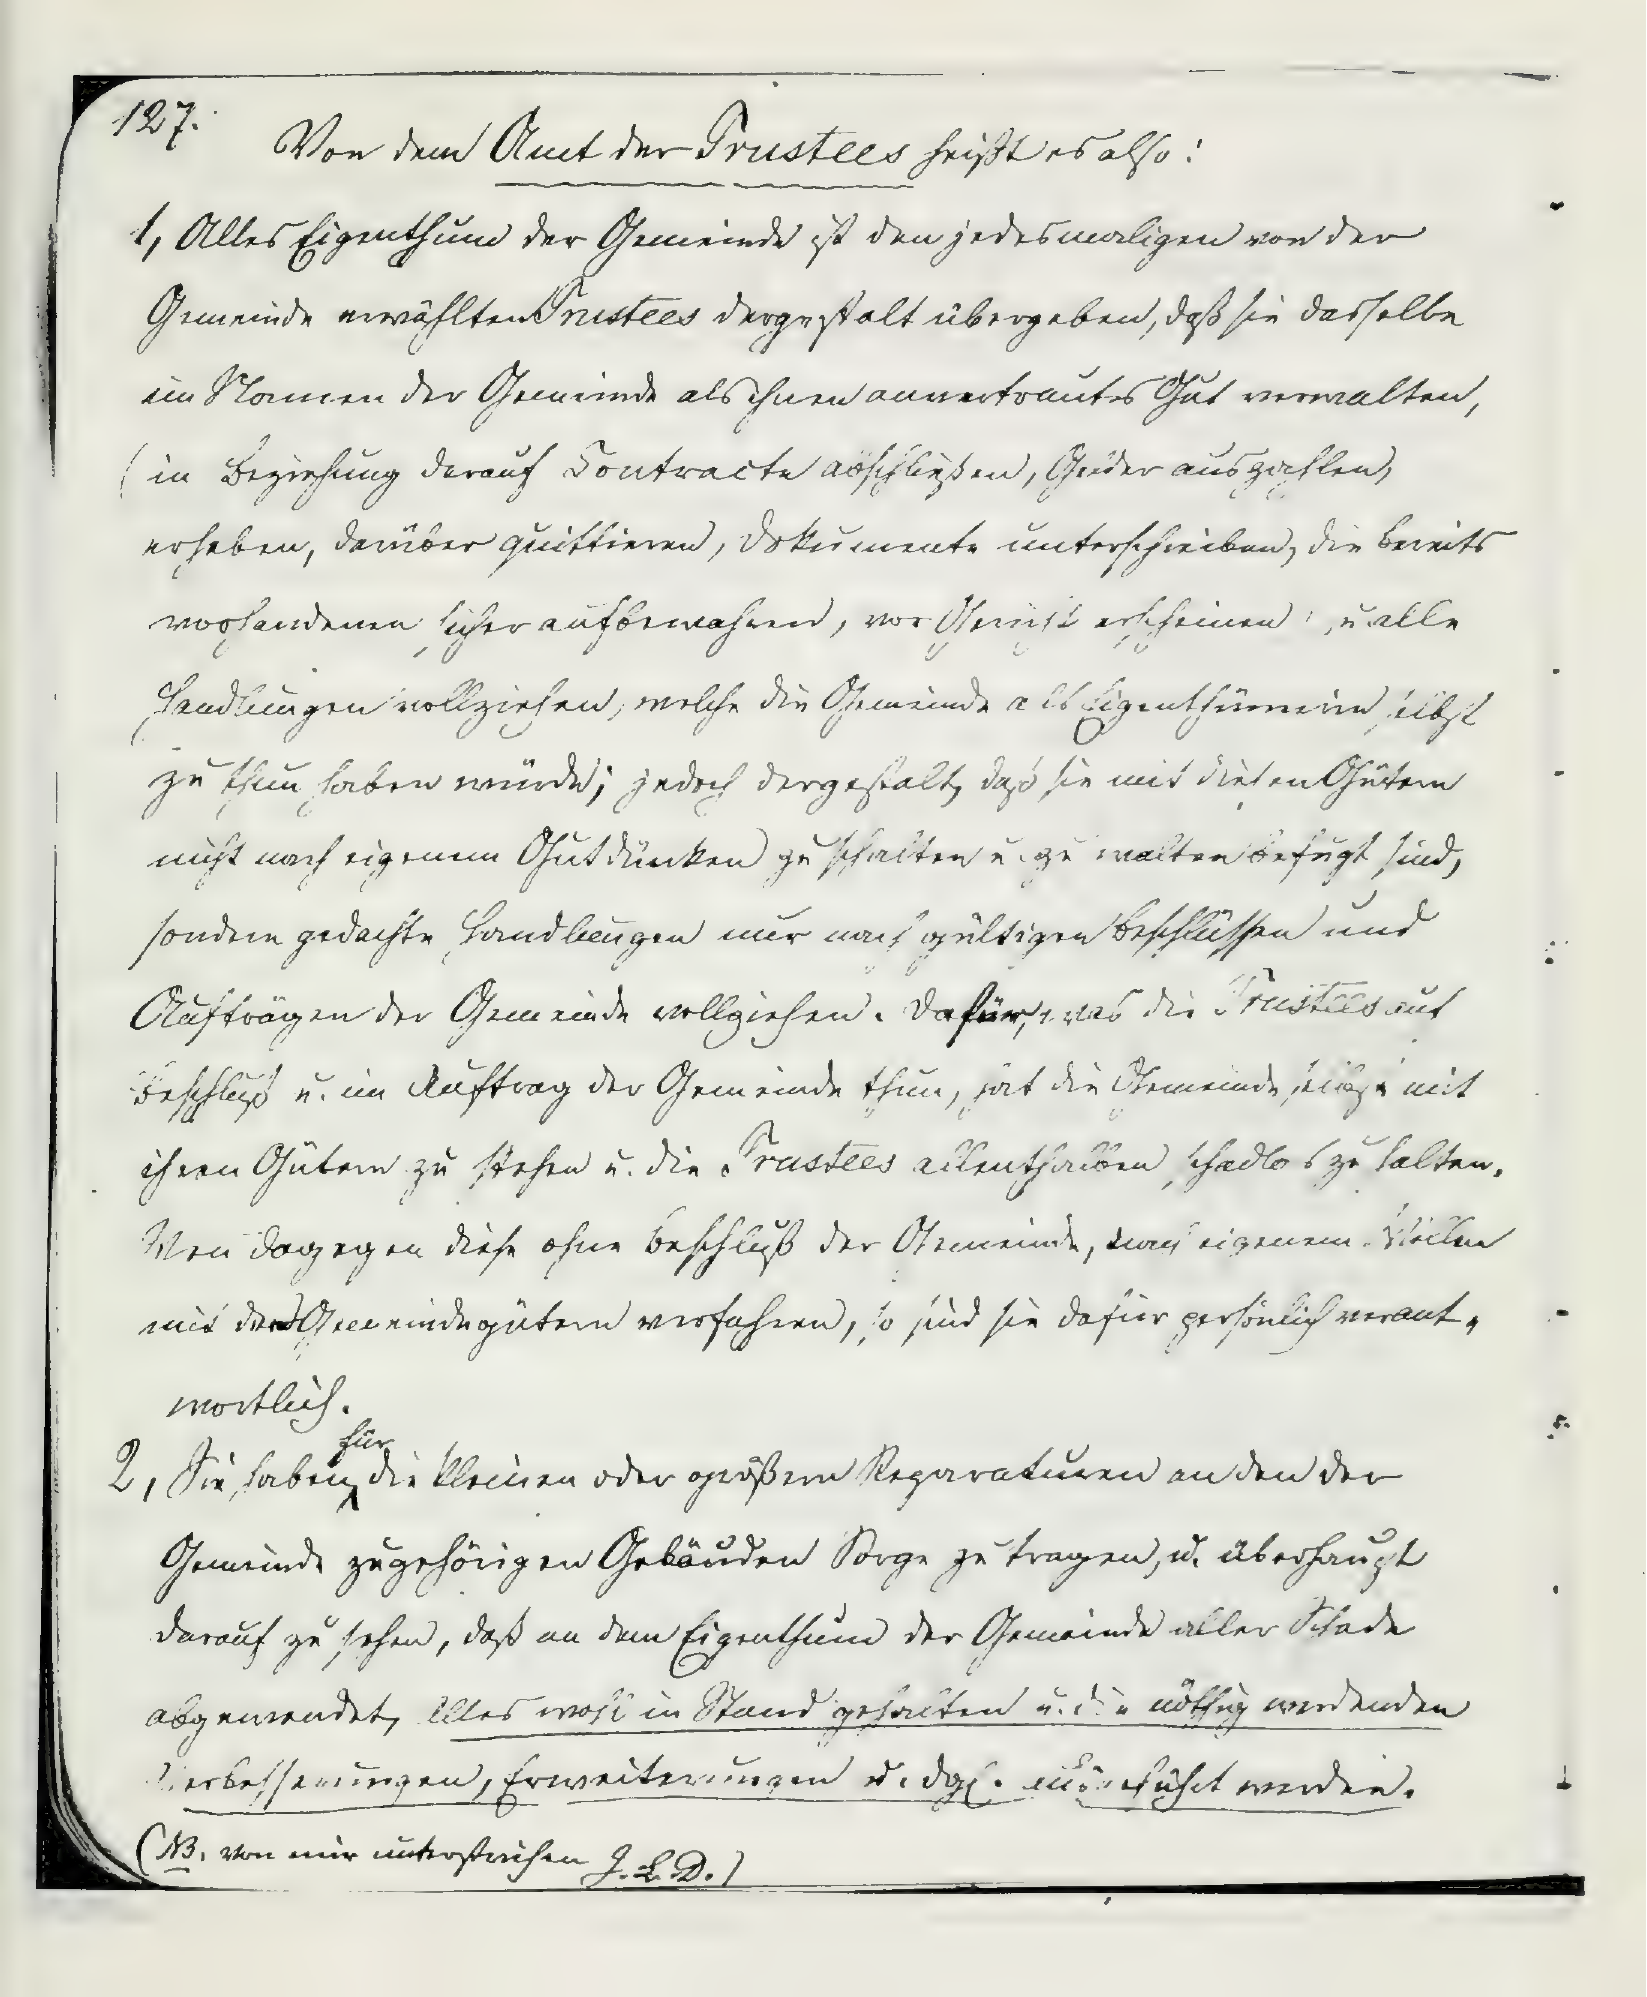 127.
Von dem Amt der Trustees heißt es also:
1, Alles Eigenthum der Gemeinde ist den jedesmaligen von der
Gemeinde erwählten Trustees dergestalt übergeben, daß sie dasselbe
im Namen der Gemeinde als ihnen anvertrautes Gut verwalten,
(in Beziehung darauf Contracte abschließen, Gelder auszahlen,
erheben, darüber quittieren, Dokumente unterschreiben, die bereits
vorhandenen sicher aufbewahren, vor Gericht erscheinen, u. alle
Handlungen vollziehen, welche die Gemeinde als Eigenthümerin selbst
zu thun haben würde; jedoch dergestalt, daß sie mit diesen Gütern
nicht nach eigenem Gutdünken zu schalten u. zu walten befugt sind,
sondern gedachte Handlungen nur nach gültigen Beschlüssen und
Aufträgen der Gemeinde vollziehen. Dafür, was die Trustees auf
Beschluß u. im Auftrag der Gemeinde thun, hat die Gemeinde selbst mit
ihren Gütern zu stehen u. die Trustees allenthalben schadlos zu halten.
Wen̄ dagegen diese ohne Beschluß der Gemeinde, nach eigenem Willen
mit den Gemeindegütern verfahren, so sind sie dafür persönlich verant-
wortlich.
2, Sie haben für die kleinen oder größern Reparaturen an den der
Gemeinde zugehörigen Gebäuden Sorge zu tragen, u. überhaupt
darauf zu sehen, daß an dem Eigenthum der Gemeinde aller Schade
abgewendet, Alles wohl in Stand gehalten u. die nöthig werdenden
Verbesserungen, Erweiterungen u. dgl. ausgeführt werden.
(NB. von mir unterstrichen J. L. D.)